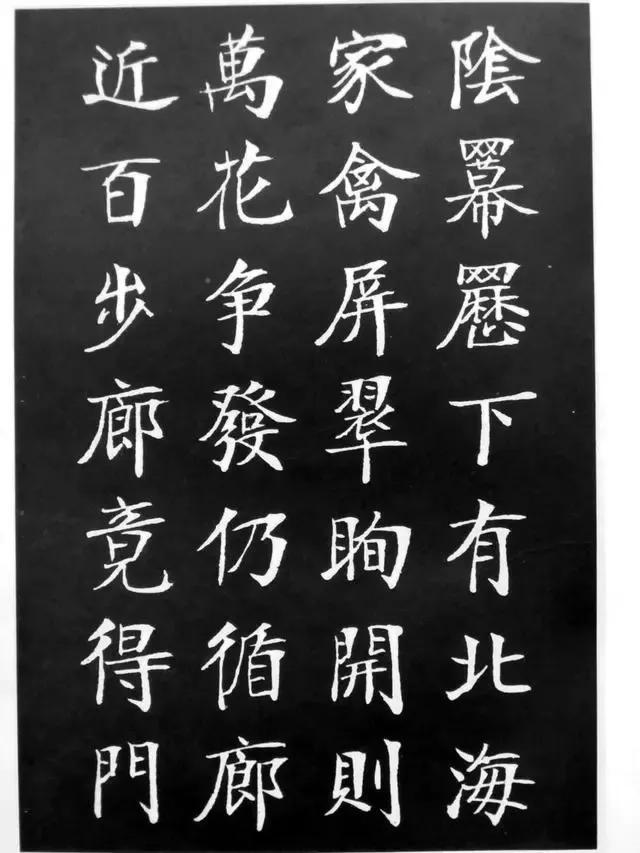 陰羃㒹下有北海
家禽屏翠眴開則
萬花争發仍循廊
近百步廊竟得門